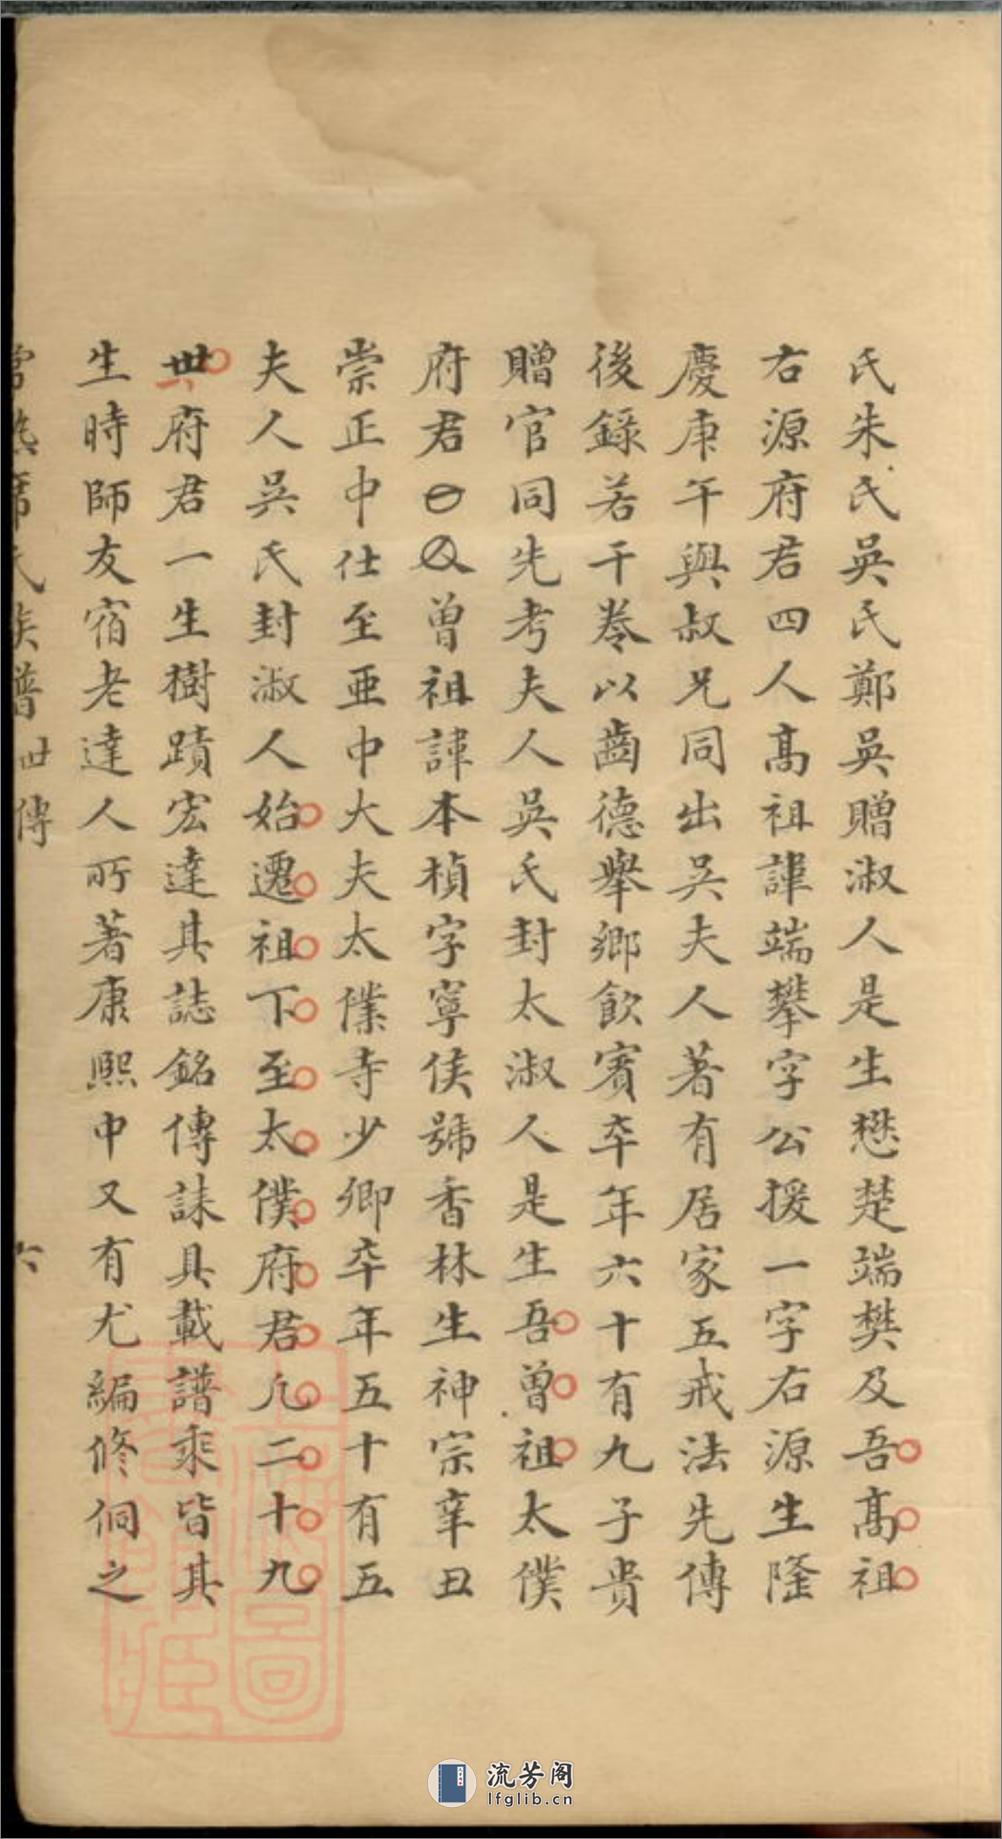 氏朱氏吳氏鄭吳贈淑人是生懋楚端樊及吾高祖
右源府君四人高祖諱端攀字公援一字右源生隆
慶庚午與叔兄同出吳夫人著有居家五戒法先傳
後錄若干卷以齒德舉鄉飲賓卒年六十有九子貴
贈官同先考夫人吳氏封太淑人是生吾曾祖太僕
府君曾祖諱本楨字寧侯號香林生神宗辛丑
崇正中仕至亚中大夫太僕寺少卿卒年五十有五
夫人吳氏封淑人始遷祖下至太僕府君凡二十九
世府君一生樹蹟宏達其誌銘傳誄具載譜乘皆其
生時師友宿老達人所著康熙中又有尤編修侗之
常熟席氏族譜 世傳 六
流芳阁
lfglib.cn